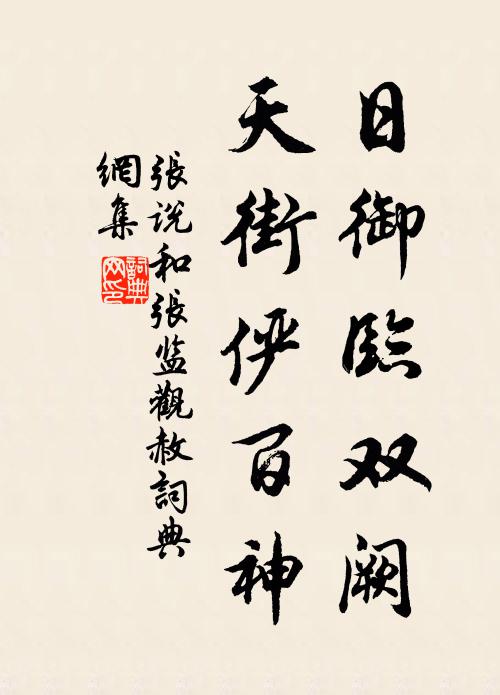 日御臨双阙
天街俨百神
張说和張监觀赦詞典
網集
詞典
网印